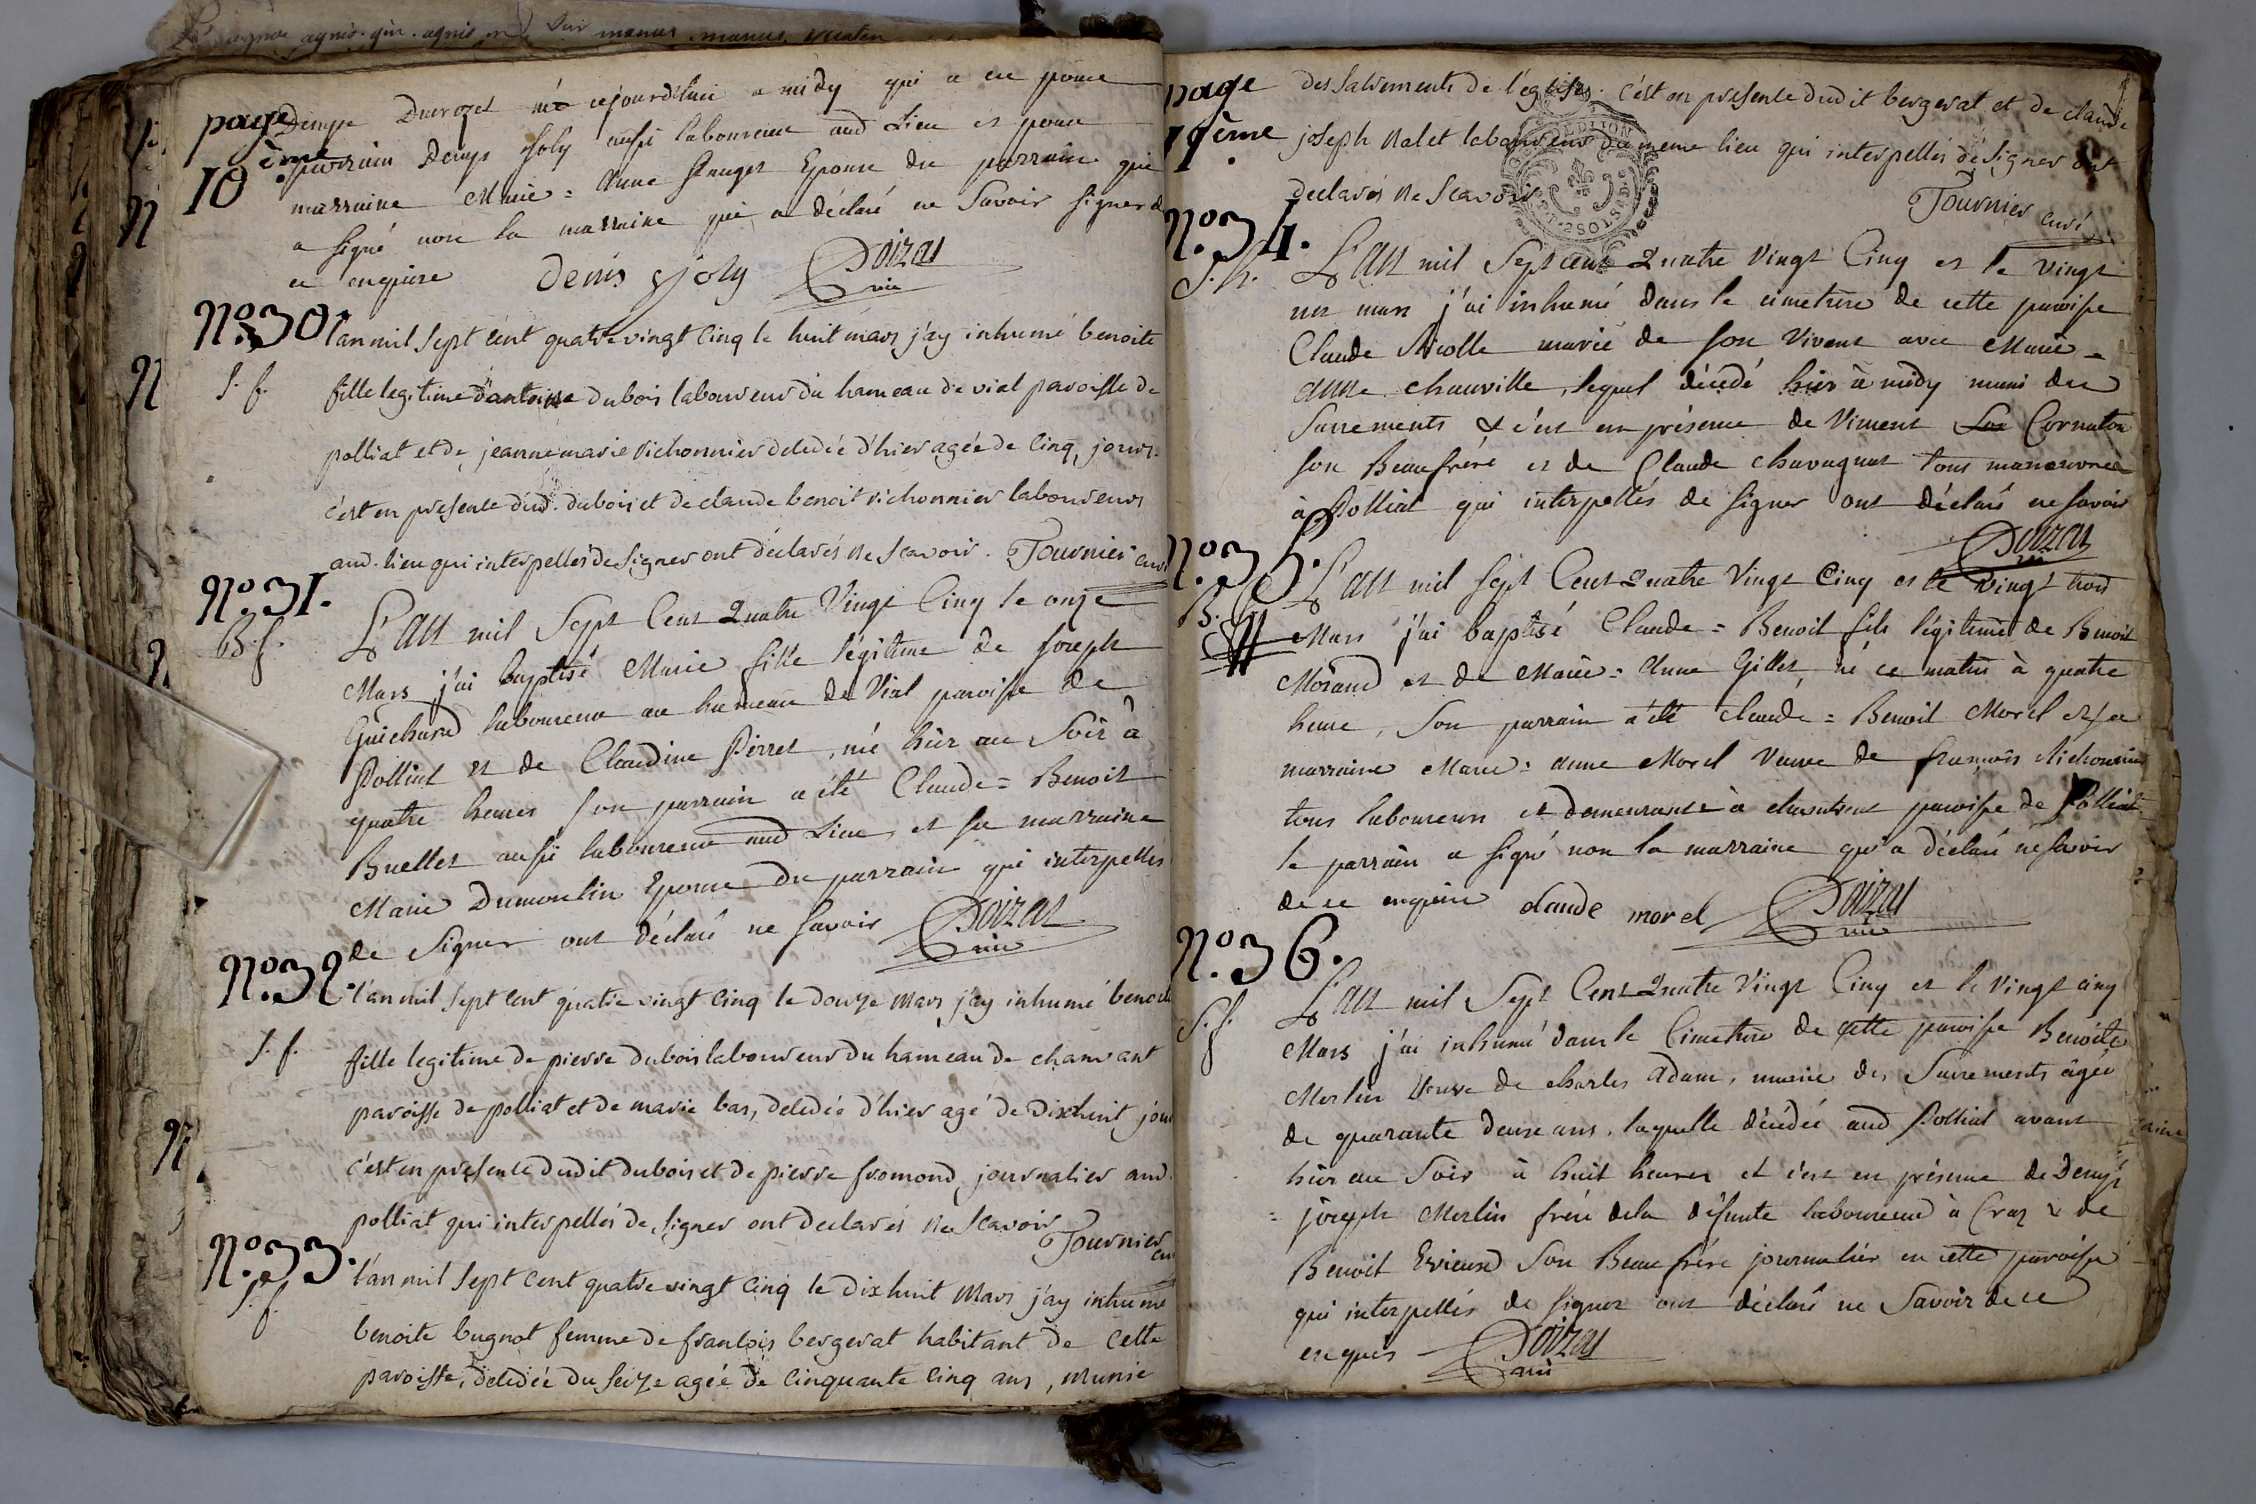 page
10ème
Denyse Ducrozet née cejourd'hui a midy qui a eu pour
parrain Denys Joly aussi laboureur aud Lieu et pour
marraine Marie = Anne Epouse du parrain qui
a signé non la marraine qui a déclaré ne Savoir signer de
ce enquise Denis joly Poizat
N.o30.
S. f.
l'an mil Sept cent quatre vingt cinq le huit mars j'ay inhumé benoite
fille legitime d'antoine dubois laboureur du hameau de vial paroisse de
polliat et de jeanne marie vichonnier decedée d'hier agée de cinq jours.
c'est en presence dud. dubois et de claude benoit vichonnier laboureurs
aud. lieu qui interpellés de Signer ont déclarés ne Scavoir. Tournier curé
N.o31.
B. f.
L'An mil Sept Cent Quatre Vingt Cinq le onze
Mars j'ai baptisé Marie fille légitime de Joseph
Guichard laboureur au hameau de Vial paroisse de
Polliat et de Claudine Perret, née hier au Soir à
quatre heures son parrain a été Claude = Benoit
Buellet aussi laboureur aud Lieu et sa marraine
Marie Dumoulin Epouse du parrain qui interpellés
de Signer ont déclaré ne savoir Poizat
N.o32.
S. f.
l'an mil sept cent quatre vingt cinq le douze Mars j'ay inhumé benoite
fille legitime de pierre dubois laboureur du hameau de chanvant
paroisse de polliat et de marie bas, decedée d'hier agé de Dixhuit jours
c'est en presence dudit dubois et de pierre fromond journalier aud.
polliat qui interpellés de Signer ont declarés ne Scavoir Tournier curé
N.o33.
S. f.
l'an mil Sept cent quatre vingt cinq le dixhuit Mars j'ay inhumé
benoite bugnot femme de francois bergerat habitant de cette
paroisse, decedée du seize agée de cinquante cinq ans, munie
page
11ème
des Sacrements de l'église. c'est en presence dudit bergerat et de claude
joseph Ralet laboureur du meme lieu qui interpellés de Signer ont
declarés ne Scavoir Tournier curé
N.o34.
S. h.
L'An mil Sept cent Quatre Vingt Cinq et le vingt
un mars j'ai inhumé dans le cimetiere de cette paroisse
Claude Nicolle marié de son Vivant avec Marie =
Anne Chauville, lequel décédé hier à midy muni des
Sacrements & c'est en présence de Vincent Cornaton
son Beaufrère et de Claude Chavagnat tous manoeuvres
à Polliat qui interpellés de signer ont déclaré ne savoir
Poizat
N.o35.
B. G
L'An mil sept Cent Quatre Vingt Cinq et le vingt trois
Mars j'ai baptisé Claude = Benoit fils légitime de Benoit
Morand et de Marie = Anne Gillet, né ce matin à quatre
heure, Son parrain a été Claude = Benoit Morel et sa
marraine Marie = Anne Morel Veuve de françois Michonnier
tous laboureurs et demeurants à chanvant paroisse de Polliat
le parrain a signé non la marraine qui a déclaré ne savoir
de ce enquise claude morel Poizat
N.o36.
S. f.
L'An mil Sept Cent Quatre Vingt Cinq et le vingt cinq
Mars j'ai inhumé dans le Cimetiere de cette paroisse Benoite
Merlin Veuve de charles Adam, munie des Sacrements âgée
de quarante deux ans, laquelle décédée aud Polliat avant
hier au Soir à huit heures et c'est en présence de Denys
= joseph Merlin frére de la défunte laboureur à Craz & de
Benoit Evieux Son Beau frére journalier en cette paroisse
qui interpellés de signer ont déclaré ne Savoir de ce
enquis Poizat